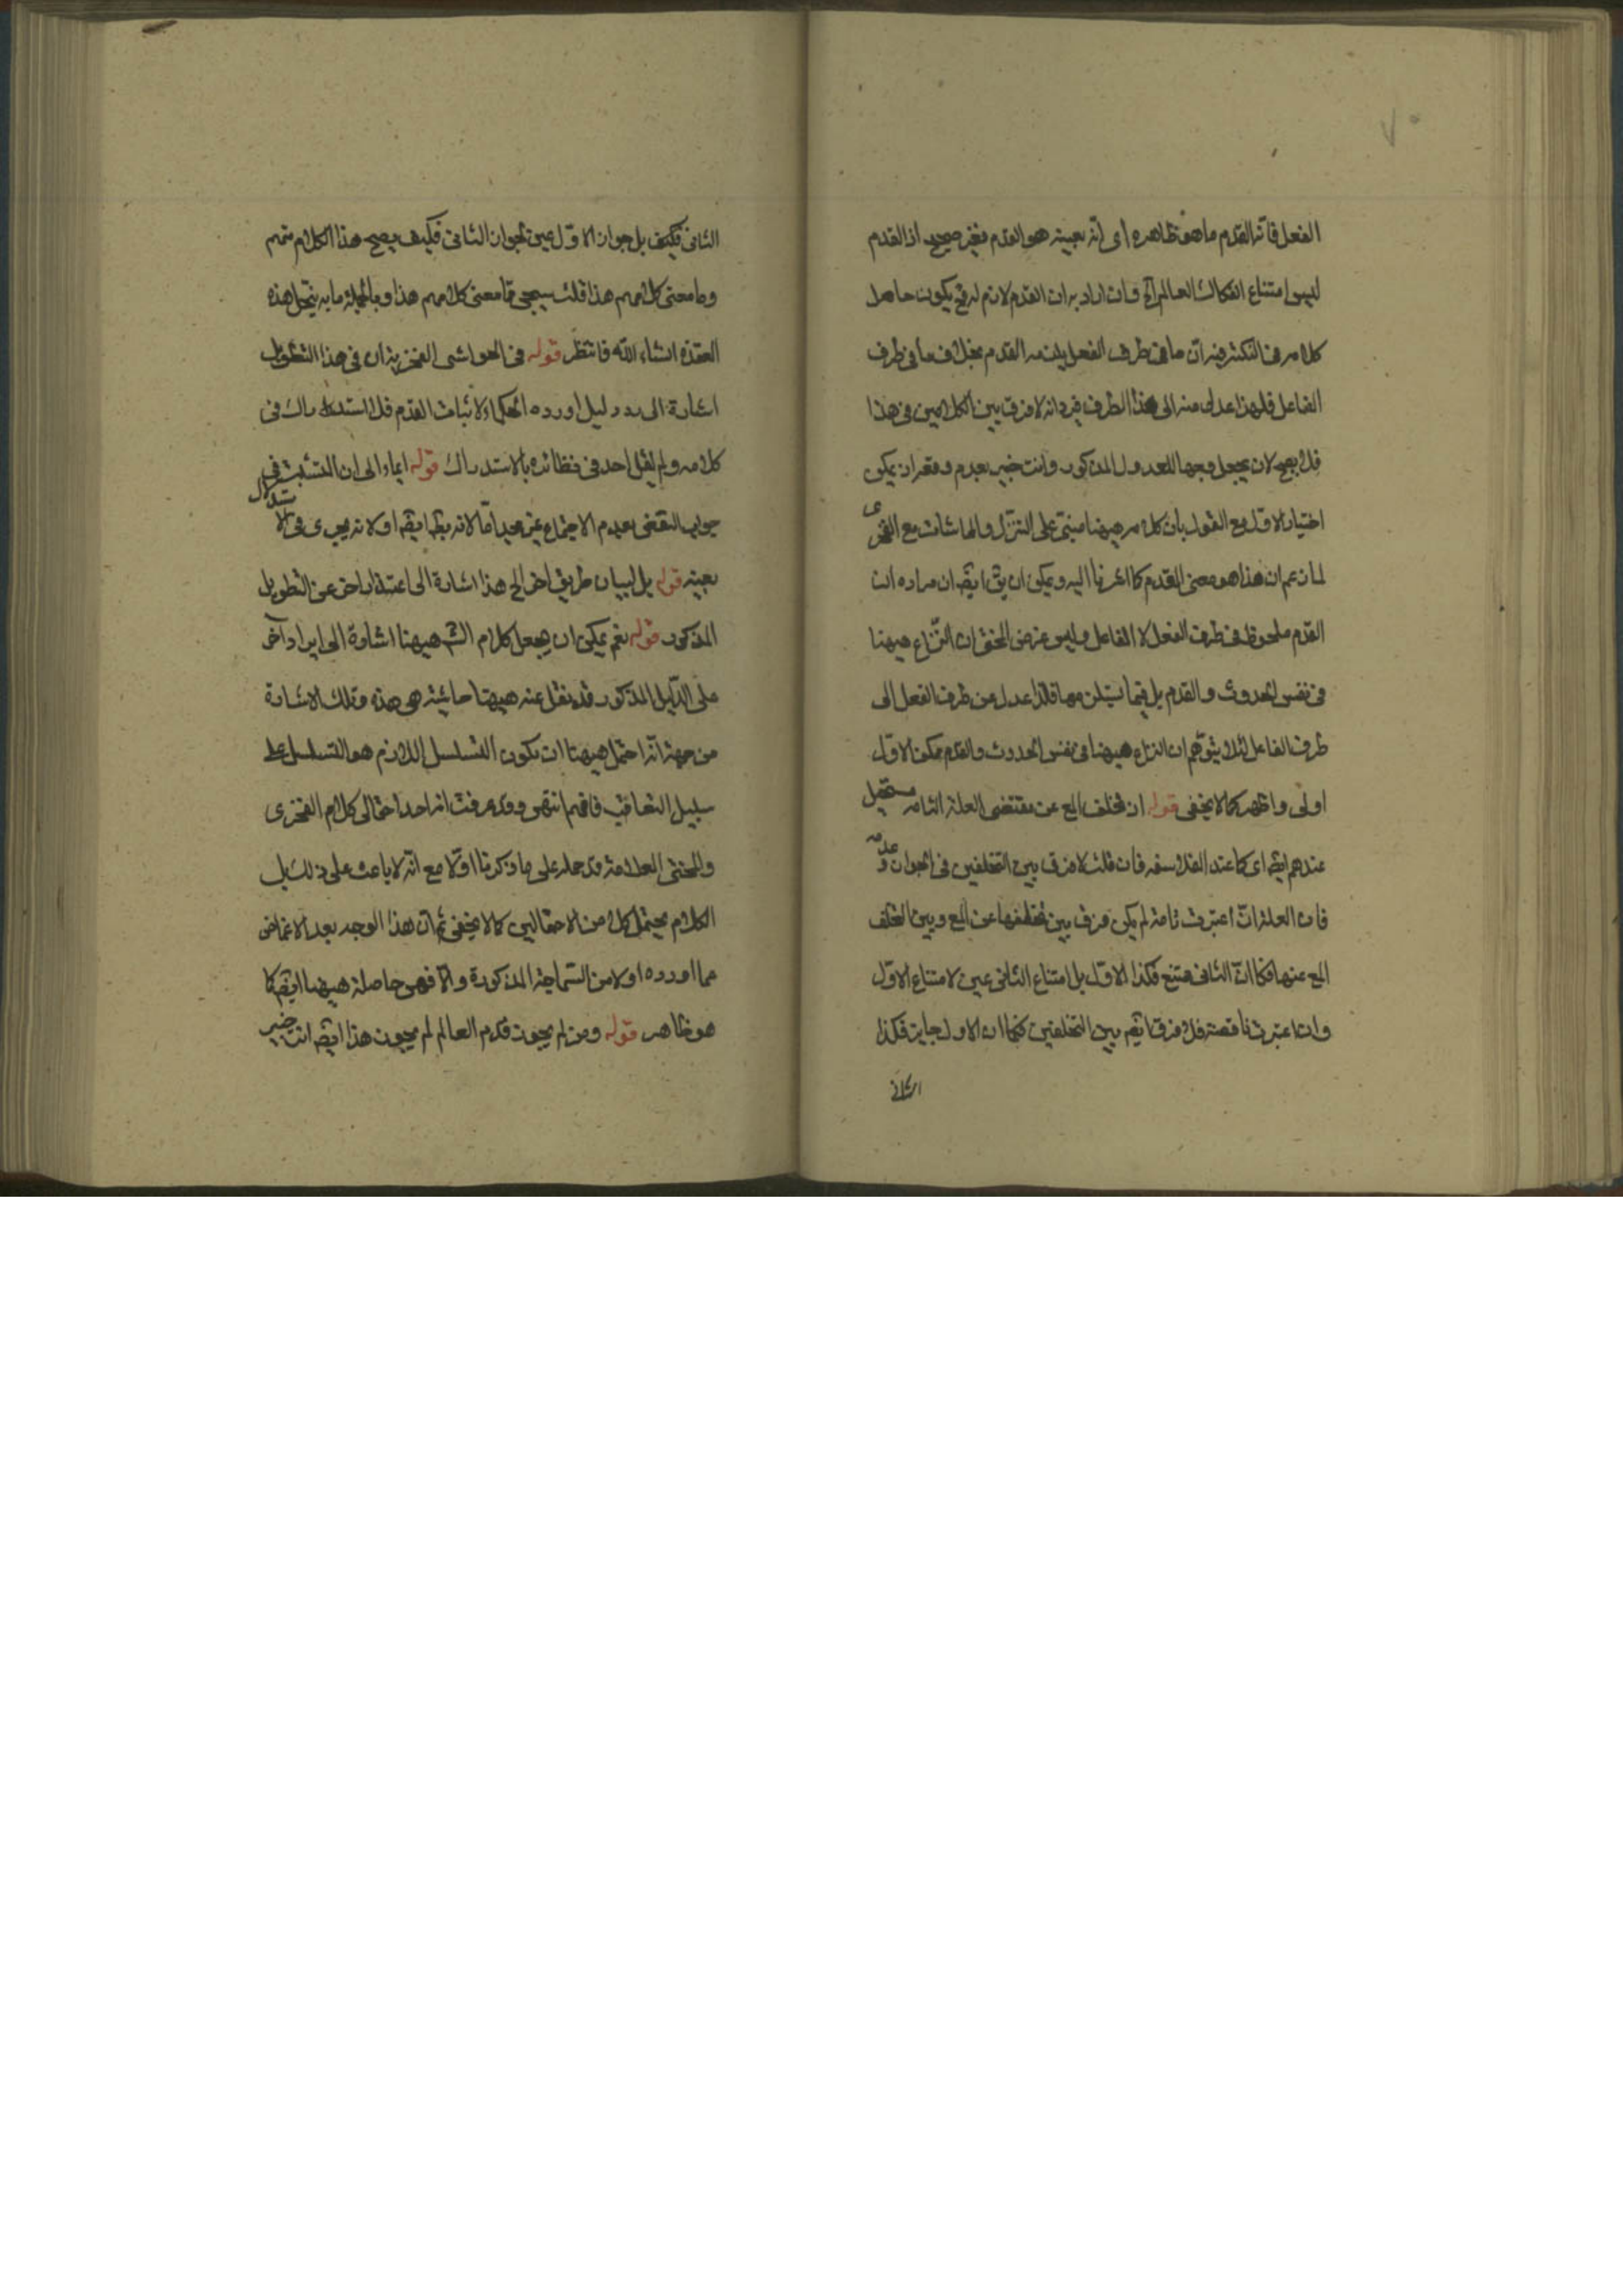 ٧٠
الفعل فانه القدم ما هو ظاهره اى انه بعينه هو القدم فغير صحيح اذ القدم
ليس امتناع انفكاك العالم الخ وان اراد به ان القدم لازم له فح يكون حاصل
كلامه فى ان ما فى طرف الفعل يلزمه القدم بخلاف ما فى طرف
الفاعل فلهذا عدل منه الى هذا الطرف فيرد انه لا فرق بين الكلامين فى هذا
فلا يصح لان يجعل وجها للعدول المذكور وانت خبير بعدم ان يكون
اختيار الاول مع القول بان كلامه هيهنا مبنى على التنزل والمماشات مع الفخرى
لما زعم ان هذا هو معنى القدم كما اشرنا اليه ويمكن ان يق ايضا ان مراده ان
القدم ملحوظ فى طرف الفعل لا الفاعل وليس غرض المحشى ان النزاع هيهنا
فى نفس الحدوث والقدم بل فيما يستلزمها فلذا عدل عن طرف الفعل الى
طرف الفاعل لئلا يتوهم ان النزاع هيهنا فى نفس الحدوث والقدم ممكن الاول
اولى واظهر كما لا يخفى قوله ان تخلف المع عن مقتضى العلة التامة مستحيل
عندهم ايضا اى كما عند الفلاسفه فان قلت لا فرق بين التخلفين فى الجواز وعدمه
فان العلة ان اعتبرت تامة لم يكن فرق بين تخلفها عن المع وبين تخلف
المع عنها فكما ان الثانى ممتنع فكذا الاول بل امتناع الثانى عين امتناع الاول
وان اعتبرت ناقصة فلا فرق ايضا بين التخلفين فكما ان الاول جايز فكذا
الثانى
الثانى فكيف بل جواز الاول عين لجواز الثانى فكيف يصح هذا الكلام منهم
وما معنى كلامهم هذا قلت سيجى منا معنى كلامهم هذا وبالجملة ما به ينحل هذه
العقدة انشاء الله فانتظر قوله فى الحواشى الفخرية ان فى هذا التطويل
اشارة الى رد دليل اورده الحكماء لاثبات القدم فلا استدراك فى
كلامه ولم يقل احد فى نظائره بالاستدراك قوله ايماء الى ان التشبث فى
جواب النقض بعدم الاجتماع غير مجد اما لانه بط ايضا او لانه يجرى فى الاستدلال
بعينه قوله بل لبيان طريق اخر الخ هذا اشارة الى اعتذار اخر عن التطويل
المذكور قوله نعم يمكن ان يجعل كلام الش هيهنا اشارة الى ايراد آخر
على الدليل المذكور قد نقل عنه هيهنا حاشية هى هذه وتلك الاشارة
من جهة انه احتمل هيهنا ان يكون التسلسل اللازم هو التسلسل على
سبيل التعاقب فافهم انتهى وقد عرفت انه احد احتمالى كلام الفخرى
والمحشى العلامة قد حمله على ما ذكرنا اولا مع انه لا باعث على ذلك بل
الكلام يحتمل كلا من الاحتمالين كما لا يخفى ثم ان هذا الوجه بعد الاغماض
عما اورده اولا من السماجة المذكورة والا فهى حاصلة هيهنا ايضا كما
هو ظاهر قوله ومن لم يجوز قدم العالم لم يجوز هذا ايضا انت خبير